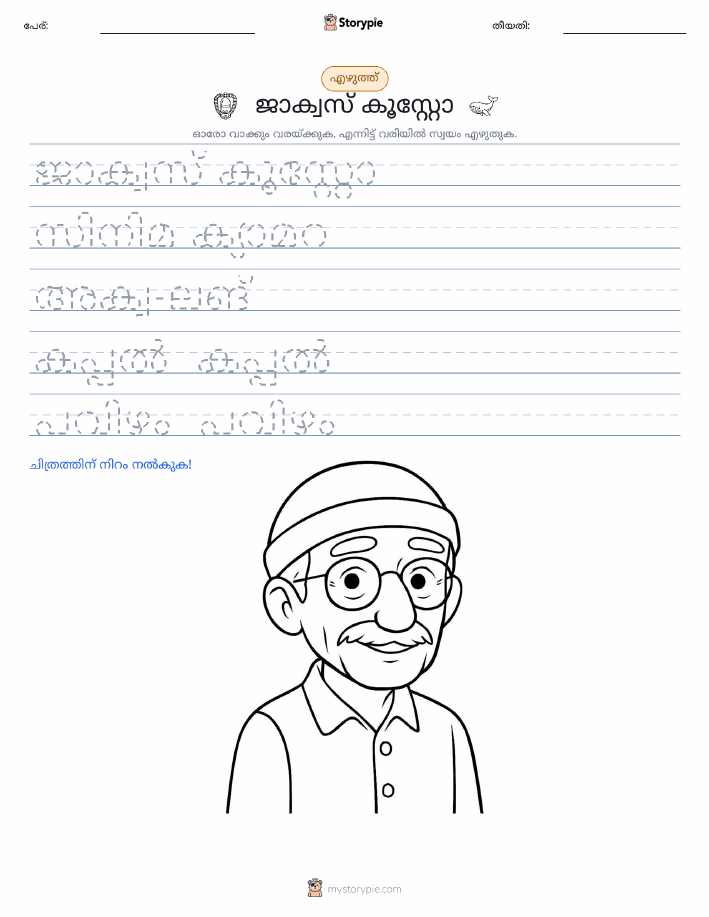 പേര്:
Storypie
തീയതി:
എഴുത്ത്
ജാക്വസ് കൂസ്റ്റോ
ഓരോ വാക്കും വരയ്ക്കുക, എന്നിട്ട് വരിയിൽ സ്വയം എഴുതുക.
ജാക്വസ് കൂസ്റ്റോ
സിനിമ ക്യാമറ
അക്വ-ലങ്
കപ്പൽ കപ്പൽ
പവിഴം പവിഴം
ചിത്രത്തിന് നിറം നൽകുക!
mystorypie.com